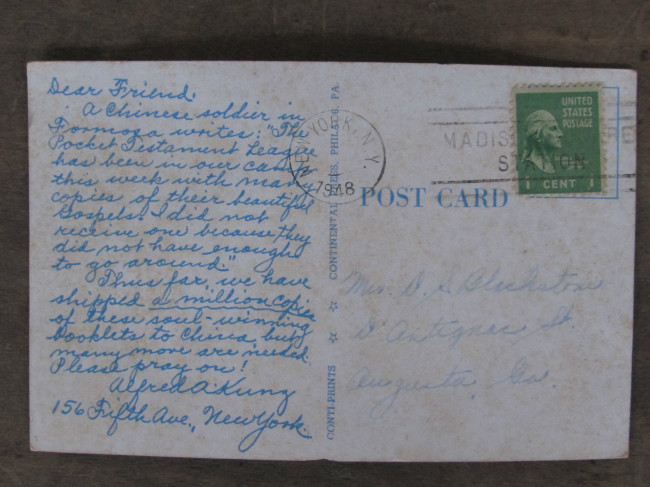 Dear Friend.
A Chinese soldier in
Formosa writes: "The
Pocket Testament League
has been in our camp
this week with many
copies of their beautiful
Gospels. I did not
receive one because they
did not have enough
to go around."
Thus far, we have
shipped a million copies
of these soul-winning
booklets to China, but
many more are needed.
Please pray on!
Alfred A. Kunz
156 Fifth Ave., New York.
CONTI-PRINTS ☆ ☆ CONTINENTAL PHILA. 5, PA.
NEW YORK, N.Y.
1948
MADIS
STATION
UNITED
STATES
POSTAGE
1 CENT 1
POST CARD
Mrs. D. S. Blackstone
D'Antignac St.
Augusta, Ga.